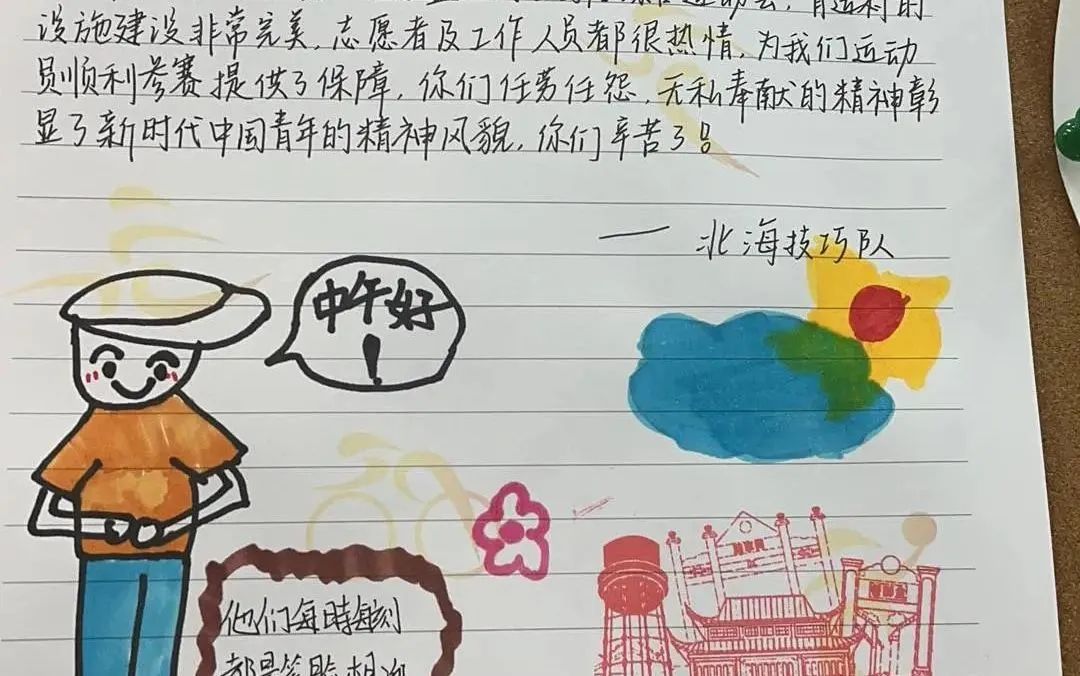 运动会,有这利的
设施建设非常完美,志愿者及工作人员都很热情,为我们运动
员顺利参赛提供了保障,你们任劳任怨,无私奉献的精神彰
显了新时代中国青年的精神风貌,你们辛苦了!
—— 北海技巧队
中午好
!
他们每時每刻
都是笑脸相迎